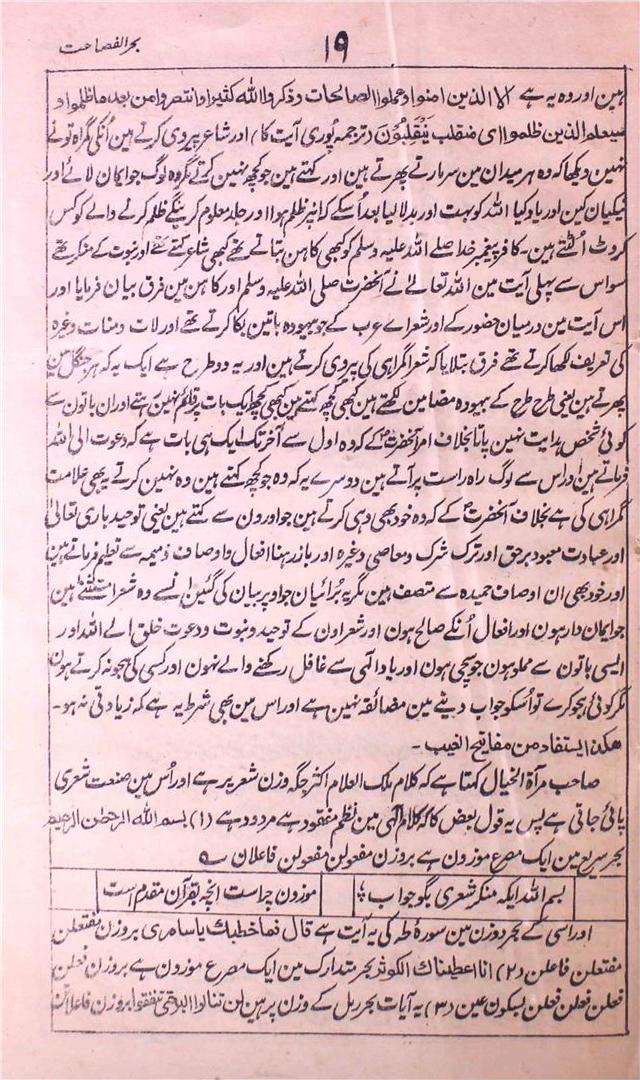 بحر الفصاحت
۱۹
ہین اور وہ یہ ہے الا الذین امنوا وعملوا الصالحات وذکروا اللہ کثیرا وانتصروا من بعد ما ظلموا و
سیعلم الذین ظلموا ای منقلب یَنْقَلِبُوْنَ (ترجمہ پوری آیت کا) اور شاعر پیروی کرتے ہین اُنکی گمراہ تو نے
نہین دیکھا کہ وہ ہر میدان مین سر مارتے پھرتے ہین اور کہتے ہین جو کچھ نہین کرتے مگر وہ لوگ جو ایمان لائے اور
نیکیان کین اور یاد کیا اللہ کو بہت اور بدلا لیا بعد اُسکے کہ انپر ظلم ہوا اور جلد معلوم کرینگے ظلم کرنے والے کہ کس
کروٹ اُلٹتے ہین۔ کافر پیغمبر خدا صلے اللہ علیہ وسلم کو کبھی کاہن بتاتے تھے کبھی شاعر کہتے تھے اور نبوت کے منکر تھے
سو اس سے پہلی آیت مین اللہ تعالےٰ نے آنحضرت صلی اللہ علیہ وسلم اور کاہن مین فرق بیان فرمایا اور
اس آیت مین درمیان حضور کے اور شعراے عرب کے جو بیہودہ باتین بکا کرتے تھے اور لات ومنات وغیرہ
کی تعریف لکھا کرتے تھے فرق بتلایا کہ شعرا گمراہی کی پیروی کرتے ہین اور یہ دو طرح سے ایک یہ کہ ہر جنگل مین
پھرتے ہین یعنی طرح طرح کے بیہودہ مضامین لکھتے ہین کبھی کچھ کہتے ہین کبھی کچھ ایک بات پر قائم نہین رہتے اور ان باتون سے
کوئی شخص ہدایت نہین پاتا بخلاف امر آنحضرتؐ کے کہ وہ اول سے آخر تک ایک ہی بات ہے کہ دعوت الی اللہ
فرماتے ہین اور اس سے لوگ راہ راست پر آتے ہین دوسرے یہ کہ وہ جو کچھ کہتے ہین وہ نہین کرتے یہ بھی علامت
گمراہی کی ہے بخلاف آنحضرتؐ کے کہ وہ خود بھی وہی کرتے ہین جو اورون سے کہتے ہین یعنی توحید باری تعالیٰ
اور عبادت معبود برحق اور ترک شرک ومعاصی وغیرہ اور باز رہنا افعال واوصاف ذمیمہ سے تعلیم فرماتے ہین
اور خود بھی ان اوصاف حمیدہ سے متصف ہین مگر یہ بُرائیان جو اوپر بیان کی گئین اُنسے وہ شعرا مستثنےٰ ہین
جو ایمان دار ہون اور افعال اُنکے صالح ہون اور شعر اون کے توحید ونبوت ودعوت خلق الے اللہ اور
ایسی باتون سے مملو ہون جو سچی ہون اور یاد الٰہی سے غافل رکھنے والے نہون اور کسی کی ہجو نہ کرتے ہون
مگر کوئی ہجو کرے تو اُسکو جواب دینے مین مضائقہ نہین ہے اور اس مین بھی شرط یہ ہے کہ زیادتی نہ ہو۔
ھکذا یستفاد من مفاتیح الغیب۔
صاحب مرآۃ الخیال کہتا ہے کہ کلام ملک العلام اکثر جگہ وزن شعر پر ہے اور اُس مین صنعت شعری
پائی جاتی ہے پس یہ قول بعض کا کہ کلام الٰہی مین نظم مفقود ہے مردود ہے (۱) بسم اللہ الرحمٰن الرحیم
بحر سریع مین ایک مصرع موزون ہے بروزن مفعولن مفعولن فاعلان ؎
بسم اللہ ایکہ منکر شعری بگو جواب
موزون چراست انچہ بقرآن مقدم است
اور اسی کے بحر و وزن مین سورۂ طٰہٰ کی یہ آیت ہے قال فما خطبك یا سامری بروزن مفتعلن
مفتعلن فاعلن (۲) انا اعطیناك الکوثر بحر متدارک مین ایک مصرع موزون ہے بروزن فعلن
فعلن فعلن فعلن بسکون عین (۳) یہ آیات بحر رمل کے وزن پر ہین لن تنالوا البر حتی تنفقوا بروزن فاعلاتن